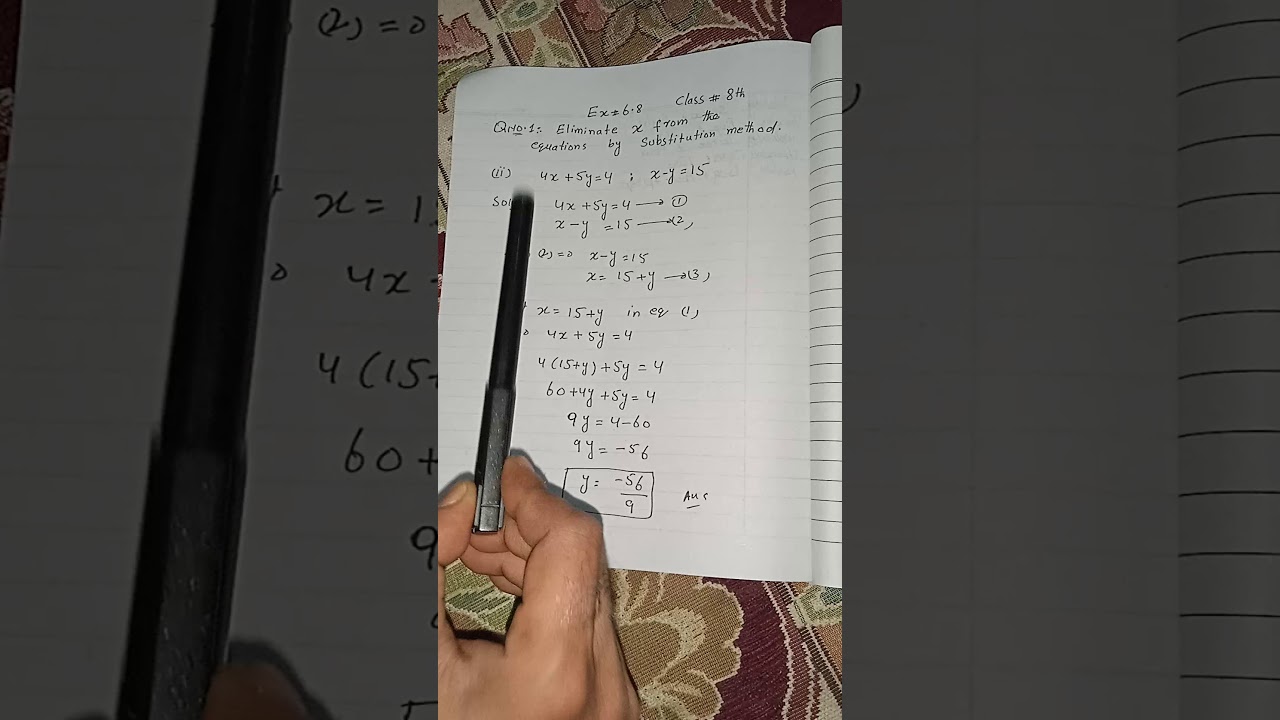 Ex#6.8 Class # 8th
Q.No.1: Eliminate x from the
equations by Substitution method.
(ii) 4x+5y=4 ; x-y=15
Sol 4x+5y=4 → ①
x-y =15 → (2)
(2)⇒ x-y=15
x= 15+y → (3)
x=15+y in eq (1)
4x+5y=4
4(15+y)+5y=4
60+4y+5y=4
9y=4-60
9y=-56
y= -56/9 Ans